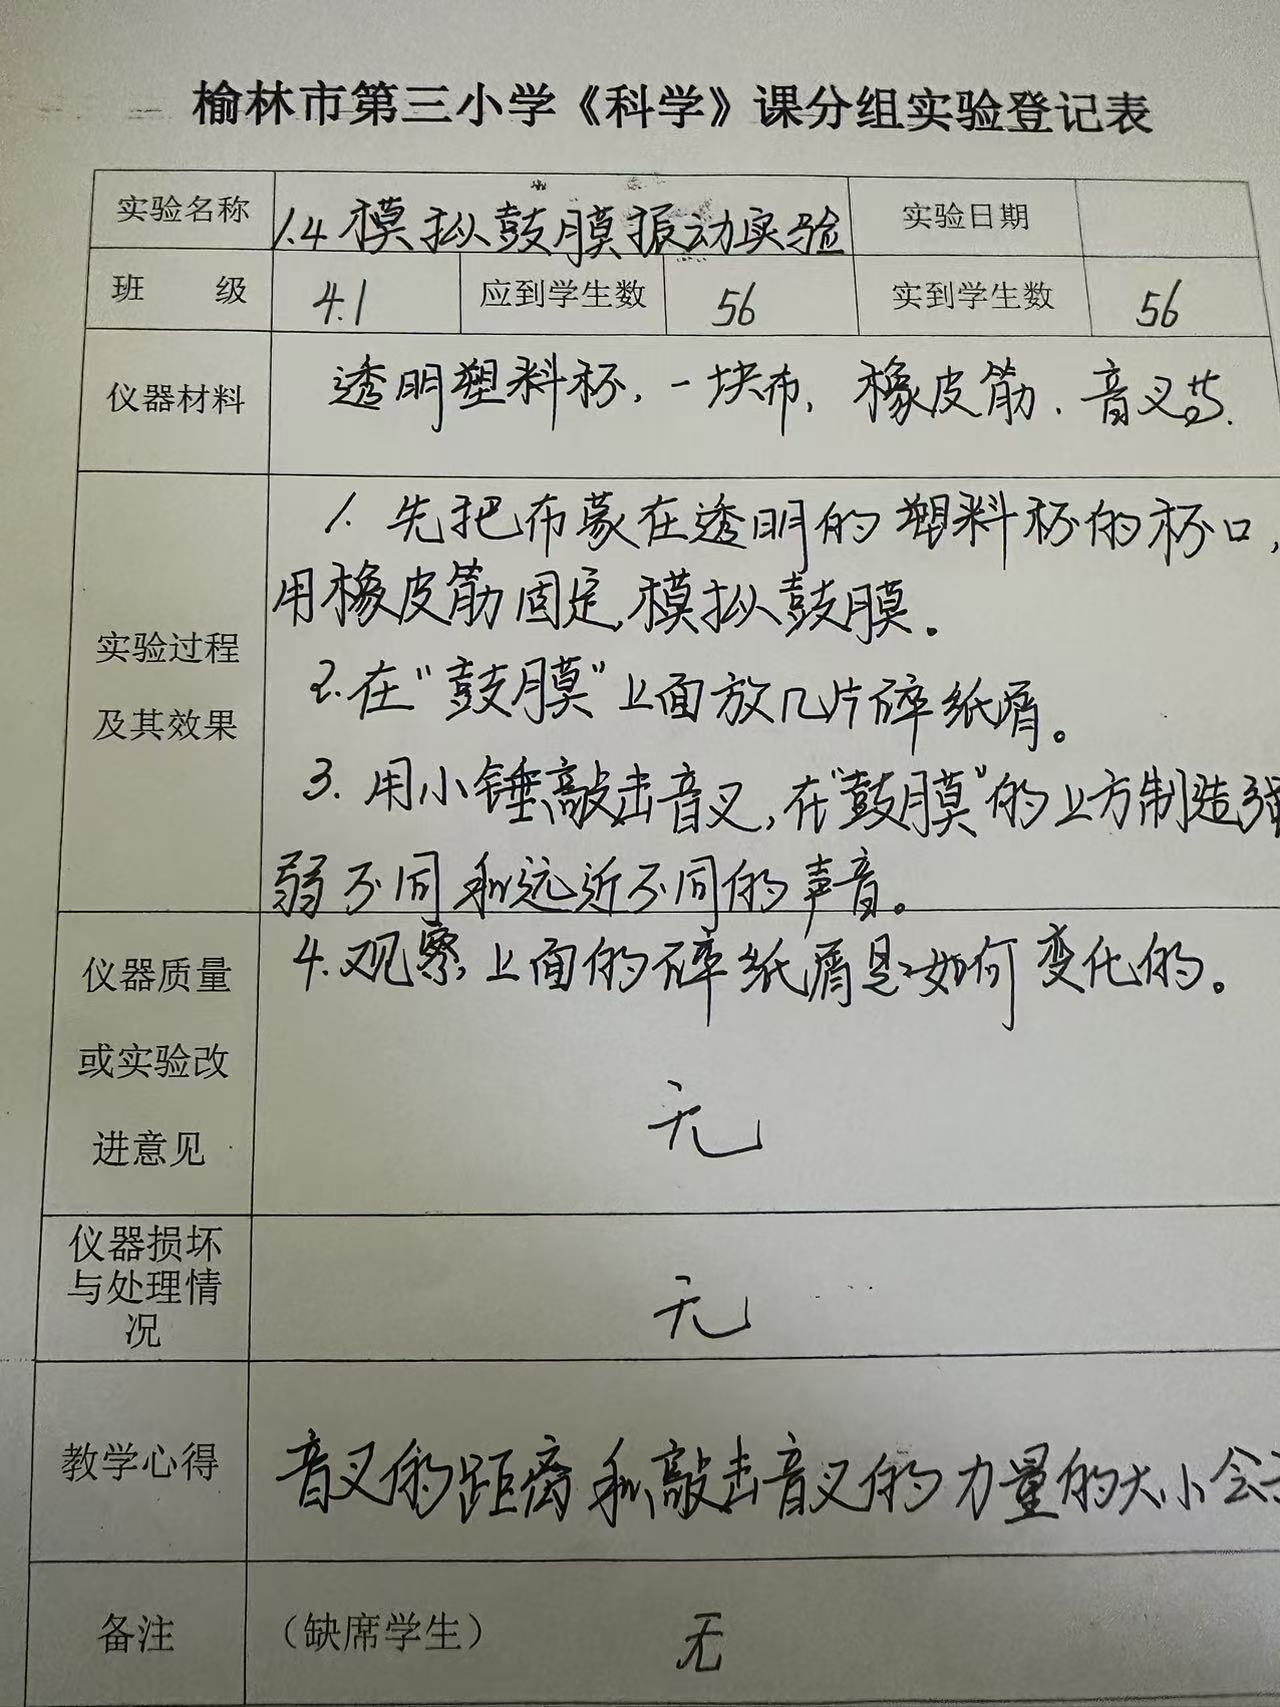 榆林市第三小学《科学》课分组实验登记表
实验名称 1.4 模拟鼓膜振动实验 实验日期
班 级 4.1 应到学生数 56 实到学生数 56
仪器材料 透明塑料杯, 一块布, 橡皮筋. 音叉等.
实验过程
及其效果
1. 先把布蒙在透明的塑料杯的杯口,
用橡皮筋固定,模拟鼓膜。
2.在"鼓膜"上面放几片碎纸屑。
3. 用小锤敲击音叉,在"鼓膜"的上方制造强
弱不同和远近不同的声音。
4.观察,上面的碎纸屑是如何变化的。
仪器质量
或实验改
进意见
无
仪器损坏
与处理情
况
无
教学心得 音叉的距离和敲击音叉的力量的大小会
备注 (缺席学生) 无